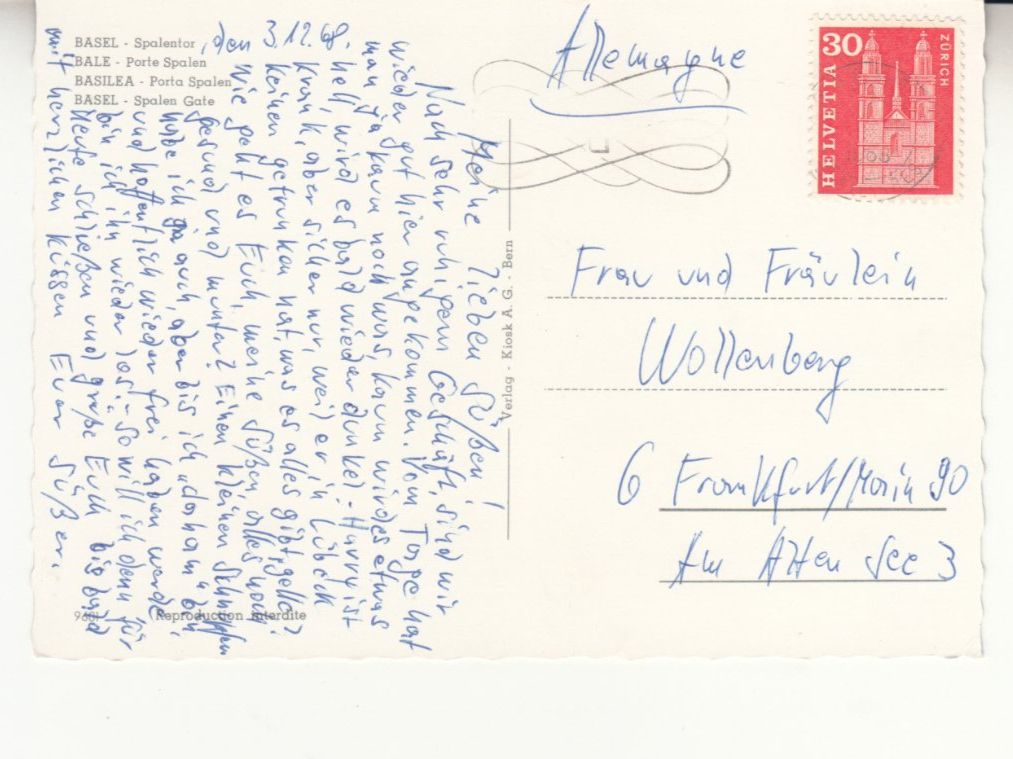 BASEL - Spalentor
BALE - Porte Spalen
BASILEA - Porta Spalen
BASEL - Spalen Gate
, den 3.12.68.
Meine lieben Süßen!
Nach sehr ruhigem Geschäft, sind wir
wieder gut hier angekommen. Vom Tage hat
man ja kaum noch was, kaum wird es etwas
hell, wird es bald wieder dunkel. - Harry ist
krank, aber sicher nur, weil er in Lübeck
keinen getrunken hat, was es alles gibt, gelle?
Wie geht es Euch, meine Süßen, alles noch
gesund und munter? Einen kleinen Schnupfen
habe ich ja auch, aber bis ich "daham" bin
und hoffentlich wieder frei haben werde
bin ich ihn wieder los! - So will ich denn für
heute schließen und grüße Euch bis bald
mit herzlichen Küssen Euer Süßer.
9601
Reproduction interdite
Verlag - Kiosk A. G. - Bern
Allemagne
30
HELVETIA
ZÜRICH
Frau und Fräulein
Wollenberg
6 Frankfurt/Main 90
Am Alten See 3